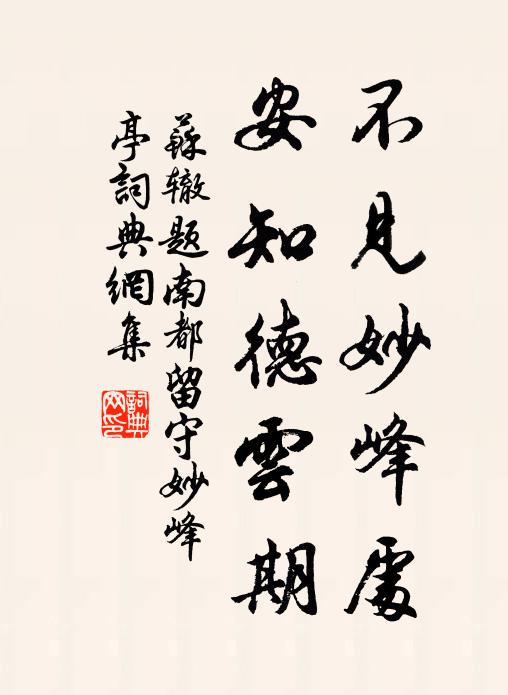 不見妙峰處
安知德雲期
蘇辙题南都留守妙峰
亭詞典網集
詞典
网印